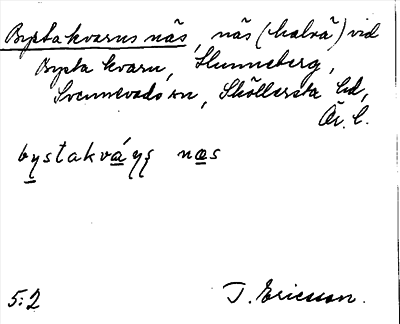 Bysta kvarns näs, näs (halvö) vid
Bysta kvarn, Hunneberg,
Svennevads sn, Sköllersta hd,
Ör. l.
bystakváṇṣ næs
5:2
T. Ericsson.